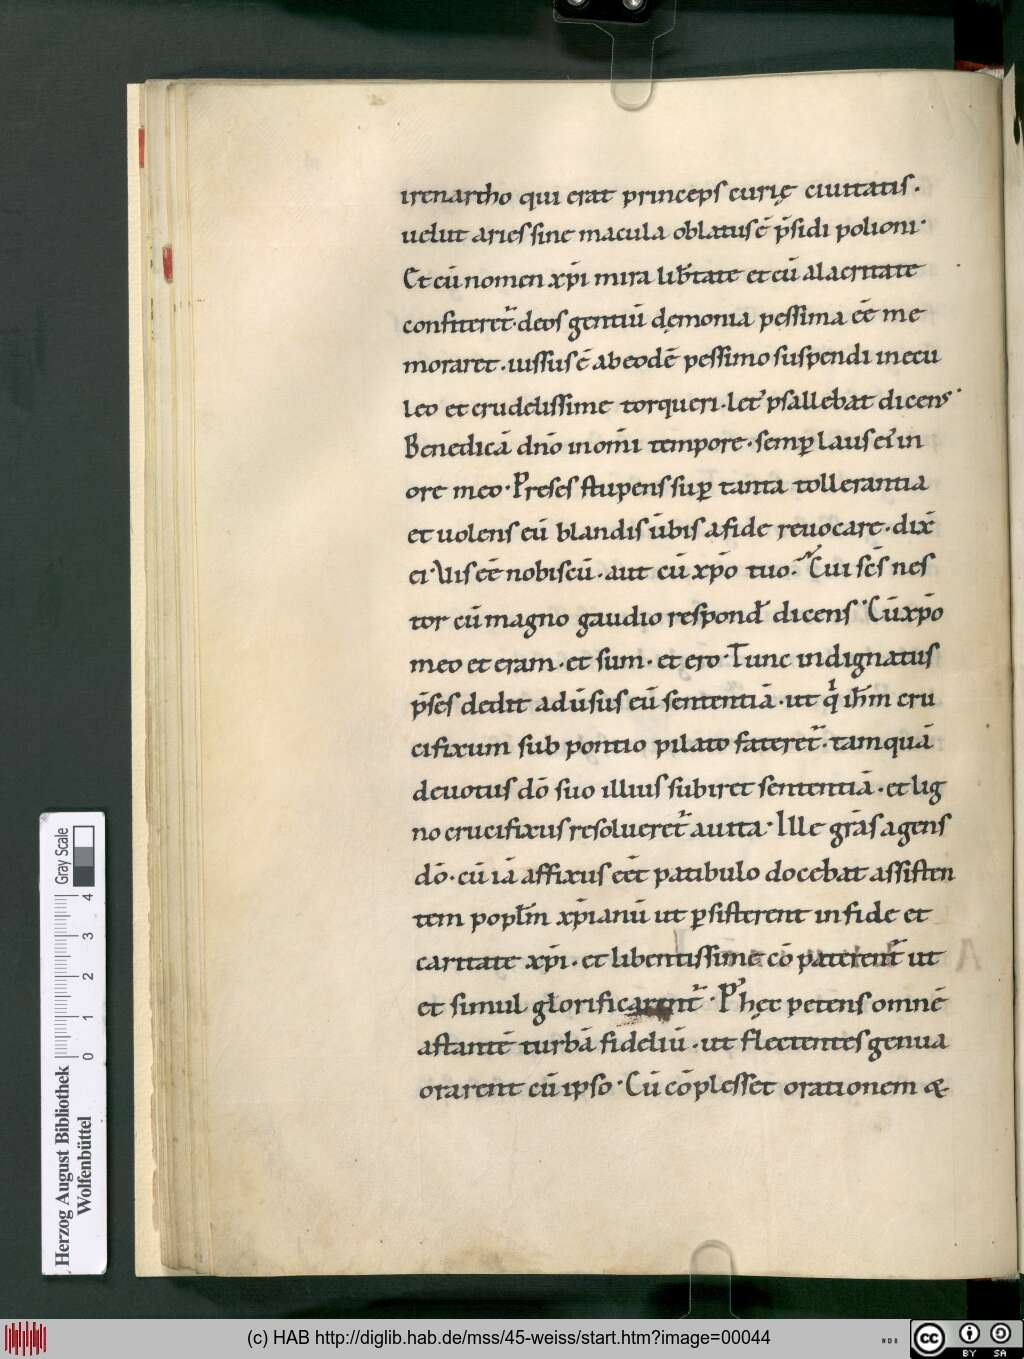 irenartho qui erat princeps curię ciuitatis.
uelut aries sine macula oblatus ē p̄sidi polioni·
Et cū nomen xp̄i mira lib̄tate et cū alacritate
confiteret᷑· deos gentiū dęmonia pessima eē me
moraret. iussus ē ab eodē pessimo suspendi in ecu
leo et crudelissime torqueri. Let᷑ psallebat dicens·
Benedicā dn̄o in om̄i tempore. semp̱ laus ei᷑ in
ore meo· Preses stupens sup̱ tanta tollerantia
et uolens eū blandis ūbis a fide reuocare. dix̄
ei· Vis eē nobiscū. aut cū xp̄o tuo.᷑ Cui sc̄s nes
tor cū magno gaudio respond̄ dicens· Cū xp̄o
meo et eram. et sum. et ero· Tunc indignatus
p̄ses dedit adūsus eū sententiā. ut qͥ ih̄m cru
cifixum sub pontio pilato fateret᷑. tamquā
deuotus dō suo illius subiret sententiā. et lig
no crucifixus resolueret᷑ a uita· Ille grās agens
dō. cū iā affixus eēt patibulo docebat assisten
tem popl̄m xp̄ianū ut p̱sisterent in fide et
caritate xp̄i. et libentissime cō paterent᷑ ut
et simul glorificarent᷑· P᷒ hęc petens omnē
astantē turbā fideliū. ut flectentes genua
orarent cū ipso· Cū cōplesset orationem &
Gray Scale
4
3
2
1
0
Herzog August Bibliothek
Wolfenbüttel
(c) HAB http://diglib.hab.de/mss/45-weiss/start.htm?image=00044
cc BY SA